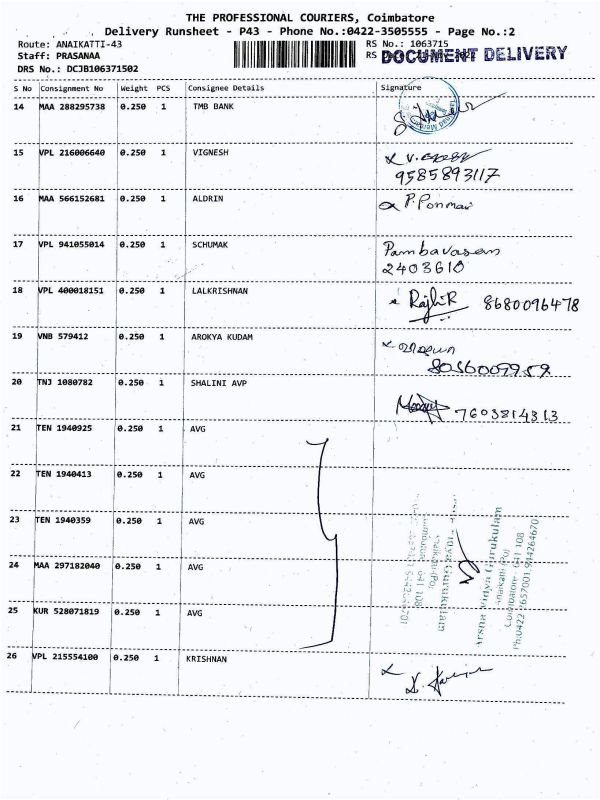 THE PROFESSIONAL COURIERS, Coimbatore
Delivery Runsheet - P43 - Phone No.:0422-3505555 - Page No.:2
Route: ANAIKATTI-43 RS No.: 1063715
Staff: PRASANAA RS DOCUMENT DELIVERY
DRS No.: DCJB106371502
S No Consignment No Weight PCS Consignee Details Signature
14 MAA 288295738 0.250 1 TMB BANK
15 VPL 216006640 0.250 1 VIGNESH
9585893117
16 MAA 566152681 0.250 1 ALDRIN P. Ponmar
17 VPL 941055014 0.250 1 SCHUMAK Pambavasan
2403610
18 VPL 400018151 0.250 1 LALKRISHNAN Rajhi R 8680096478
19 VNB 579412 0.250 1 AROKYA KUDAM
8056009959
20 TNJ 1080782 0.250 1 SHALINI AVP
7603814313
21 TEN 1940925 0.250 1 AVG
22 TEN 1940413 0.250 1 AVG
23 TEN 1940359 0.250 1 AVG
24 MAA 297182040 0.250 1 AVG
25 KUR 528071819 0.250 1 AVG
Arsha Vidya Gurukulam
Anaikatti (Po)
Coimbatore - 641 108
26 VPL 215554100 0.250 1 KRISHNAN